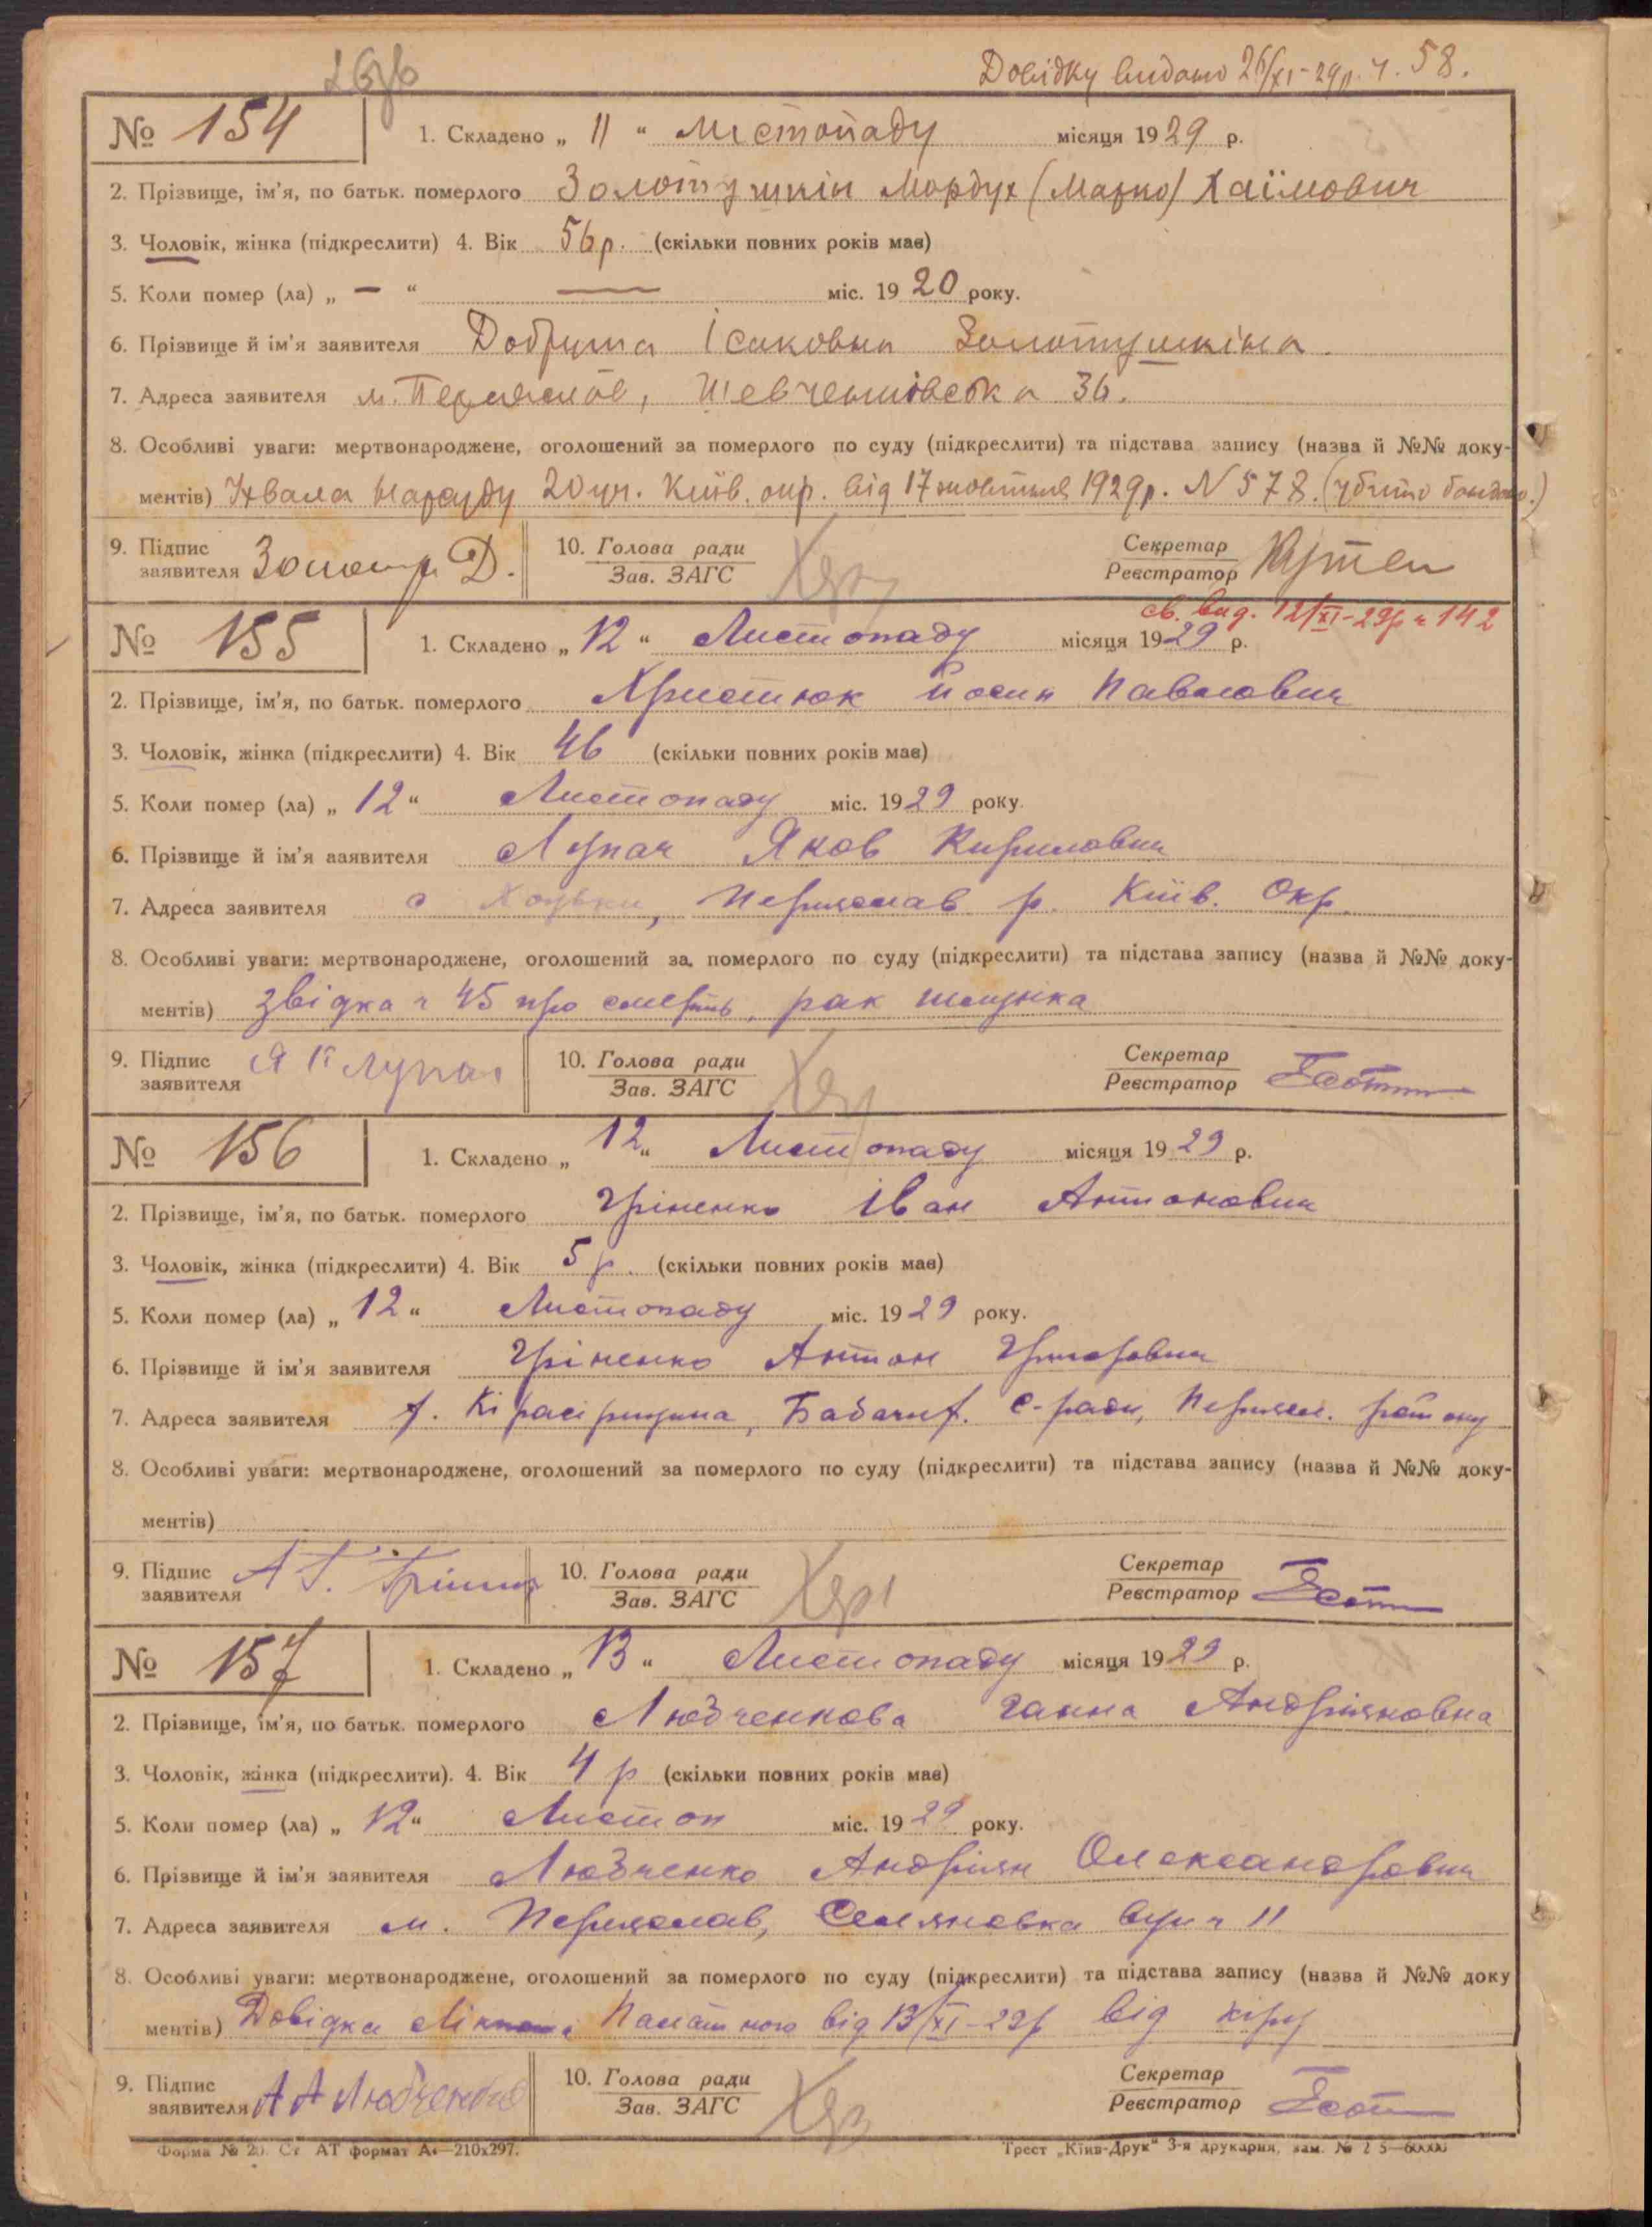 Довідку видано 26/XI-29р. ч. 58.
№ 154 1. Складено „ 11 “ листопаду місяця 1929 р.
2. Прізвище, ім’я, по батьк. померлого Золотушкін Мордух (Марко) Хаїмович
3. Чоловік, жінка (підкреслити) 4. Вік 56р. (скільки повних років має)
5. Коли помер (ла) „ — “ — міс. 1920 року.
6. Прізвище й ім’я заявителя Добруша Ісаковна Золотушкіна.
7. Адреса заявителя м. Переяслов, Шевченківська 36.
8. Особливі уваги: мертвонароджене, оголошений за померлого по суду (підкреслити) та підстава запису (назва й №№ доку-
ментів) Ухвала Нарсуду 20 уч. Київ. окр. від 17 жовтня 1929р. N 578. (убито бандою.)
9. Підпис заявителя Д. 10. Голова ради Зав. ЗАГС Секретар Реєстратор
св. вид. 12/XI-29р ч 142
№ 155 1. Складено „ 12 “ Листопаду місяця 1929 р.
2. Прізвище, ім’я, по батьк. померлого Христюк Йосип Павлович
3. Чоловік, жінка (підкреслити) 4. Вік 46 (скільки повних років має)
5. Коли помер (ла) „ 12 “ Листопаду міс. 1929 року.
6. Прізвище й ім’я ааявителя Лупач Яков Кирилович
7. Адреса заявителя с Хоцьки, Переяслав р. Київ. Окр.
8. Особливі уваги: мертвонароджене, оголошений за померлого по суду (підкреслити) та підстава запису (назва й №№ доку-
ментів) звідка ч 45 про смерть, рак шлунка
9. Підпис заявителя Я К Лупач 10. Голова ради Зав. ЗАГС Секретар Реєстратор
№ 156 1. Складено „ 12 “ Листопаду місяця 1929 р.
2. Прізвище, ім’я, по батьк. померлого Гріненко Іван Антонович
3. Чоловік, жінка (підкреслити) 4. Вік 5 р. (скільки повних років має)
5. Коли помер (ла) „ 12 “ Листопаду міс. 1929 року.
6. Прізвище й ім’я заявителя Гріненко Антон Григорович
7. Адреса заявителя х. С-ради, Переясл. району
8. Особливі уваги: мертвонароджене, оголошений за померлого по суду (підкреслити) та підстава запису (назва й №№ доку-
ментів)
9. Підпис заявителя А Г. 10. Голова ради Зав. ЗАГС Секретар Реєстратор
№ 157 1. Складено „ 13 “ Листопаду місяця 1929 р.
2. Прізвище, ім’я, по батьк. померлого Любченкова Ганна Андріяновна
3. Чоловік, жінка (підкреслити). 4. Вік 4 р (скільки повних років має)
5. Коли помер (ла) „ 12 “ Листоп міс. 1929 року.
6. Прізвище й ім’я заявителя Любченко Андріян Олександрович
7. Адреса заявителя м. Переяслав, Селяновка вул ч 11
8. Особливі уваги: мертвонароджене, оголошений за померлого по суду (підкреслити) та підстава запису (назва й №№ доку
ментів) Довідка від 13/XI-29р від кіру
9. Підпис заявителя А А Любченко 10. Голова ради Зав. ЗАГС Секретар Реєстратор
Форма № 20. Ст. АТ формат А4—210х297. Трест „Київ-Друк“ 3-я друкарня, зам. №